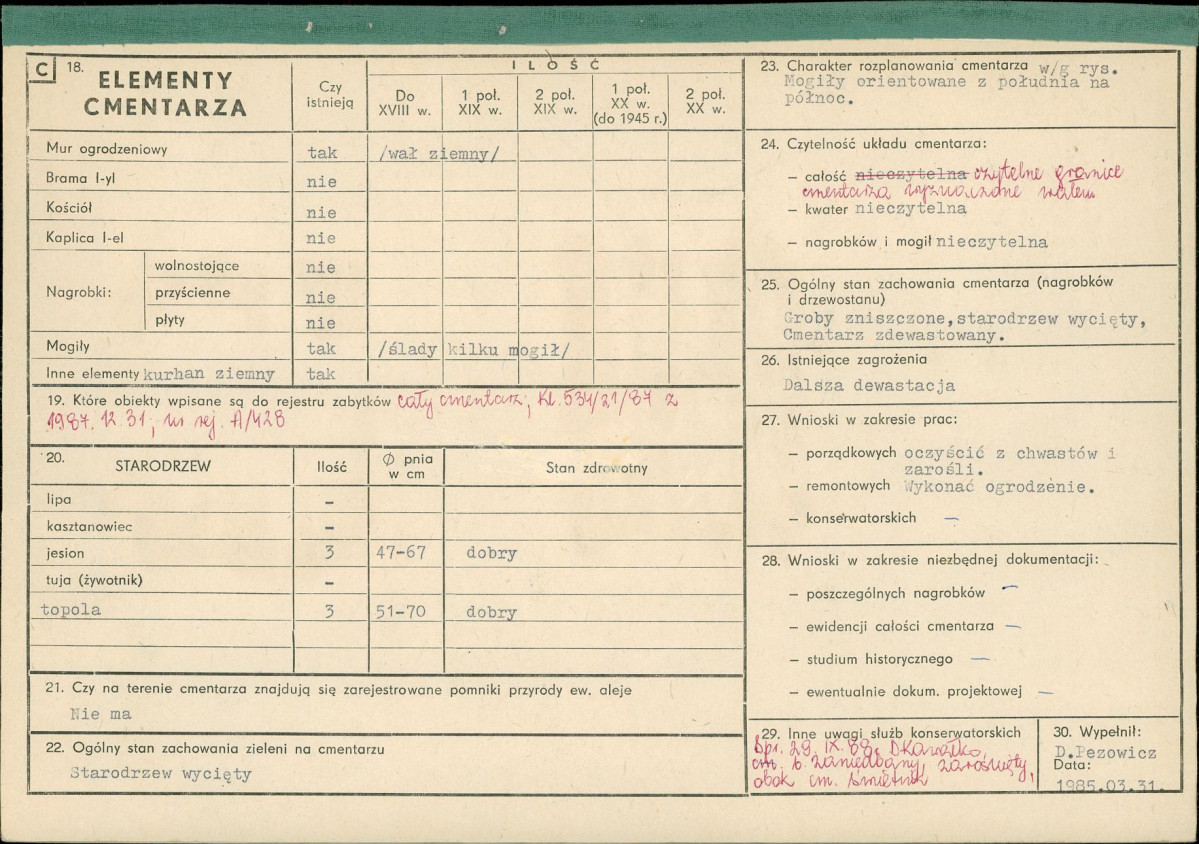 C 18. ELEMENTY CMENTARZA
Czy istnieją
ILOŚĆ
Do XVIII w.
1 poł. XIX w.
2 poł. XIX w.
1 poł. XX w. (do 1945 r.)
2 poł. XX w.
Mur ogrodzeniowy tak /wał ziemny/
Brama I-yl nie
Kościół nie
Kaplica I-el nie
Nagrobki:
wolnostojące nie
przyścienne nie
płyty nie
Mogiły tak /ślady kilku mogił/
Inne elementy kurhan ziemny tak
19. Które obiekty wpisane są do rejestru zabytków cały cmentarz; Kl. 534/21/87 z
1987.12.31; nr rej. A/428
20. STARODRZEW Ilość Ø pnia w cm Stan zdrowotny
lipa –
kasztanowiec –
jesion 3 47-67 dobry
tuja (żywotnik) –
topola 3 51-70 dobry
21. Czy na terenie cmentarza znajdują się zarejestrowane pomniki przyrody ew. aleje
Nie ma
22. Ogólny stan zachowania zieleni na cmentarzu
Starodrzew wycięty
23. Charakter rozplanowania cmentarza w/g rys.
Mogiły orientowane z południa na
północ.
24. Czytelność układu cmentarza:
– całość nieczytelna czytelne granice
cmentarza wyznaczone wałem
– kwater nieczytelna
– nagrobków i mogił nieczytelna
25. Ogólny stan zachowania cmentarza (nagrobków
i drzewostanu)
Groby zniszczone, starodrzew wycięty,
Cmentarz zdewastowany.
26. Istniejące zagrożenia
Dalsza dewastacja
27. Wnioski w zakresie prac:
– porządkowych oczyścić z chwastów i
zarośli.
– remontowych Wykonać ogrodzenie.
– konserwatorskich —
28. Wnioski w zakresie niezbędnej dokumentacji:
– poszczególnych nagrobków —
– ewidencji całości cmentarza —
– studium historycznego —
– ewentualnie dokum. projektowej —
29. Inne uwagi służb konserwatorskich
29.IX.88.
cm. b. zaniedbany, zarośnięty,
obok cm. śmietnik
30. Wypełnił:
D.Pezowicz
Data:
1985.03.31.